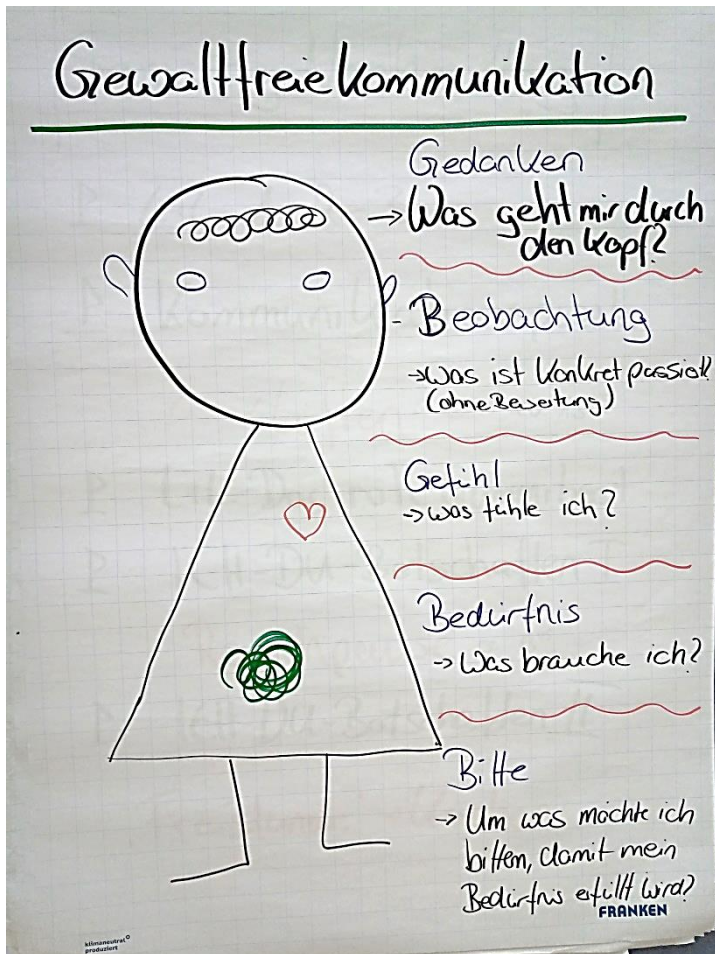 Gewaltfreie Kommunikation
Gedanken
→ Was geht mir durch
den Kopf?
- Beobachtung
→ Was ist konkret passiert?
(ohne Bewertung)
Gefühl
→ was fühle ich?
Bedürfnis
→ Was brauche ich?
Bitte
→ Um was möchte ich
bitten, damit mein
Bedürfnis erfüllt wird?
FRANKEN
klimaneutral
produziert